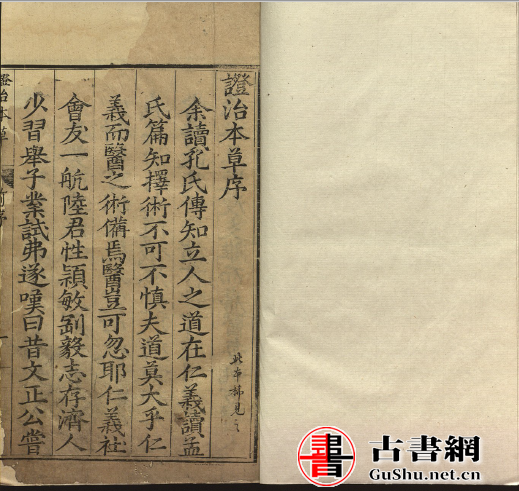 證治本草序
余讀孔氏傳知立人之道在仁義讀孟
氏篇知擇術不可不慎夫道莫大乎仁
義而醫之術備焉醫豈可忽耶仁義社
會友一航陸君性穎敏剛毅志存濟人
少習舉子業試弗遂嘆曰昔文正公嘗
證治本草
此本稀見之
古書網
GuShu.net.cn